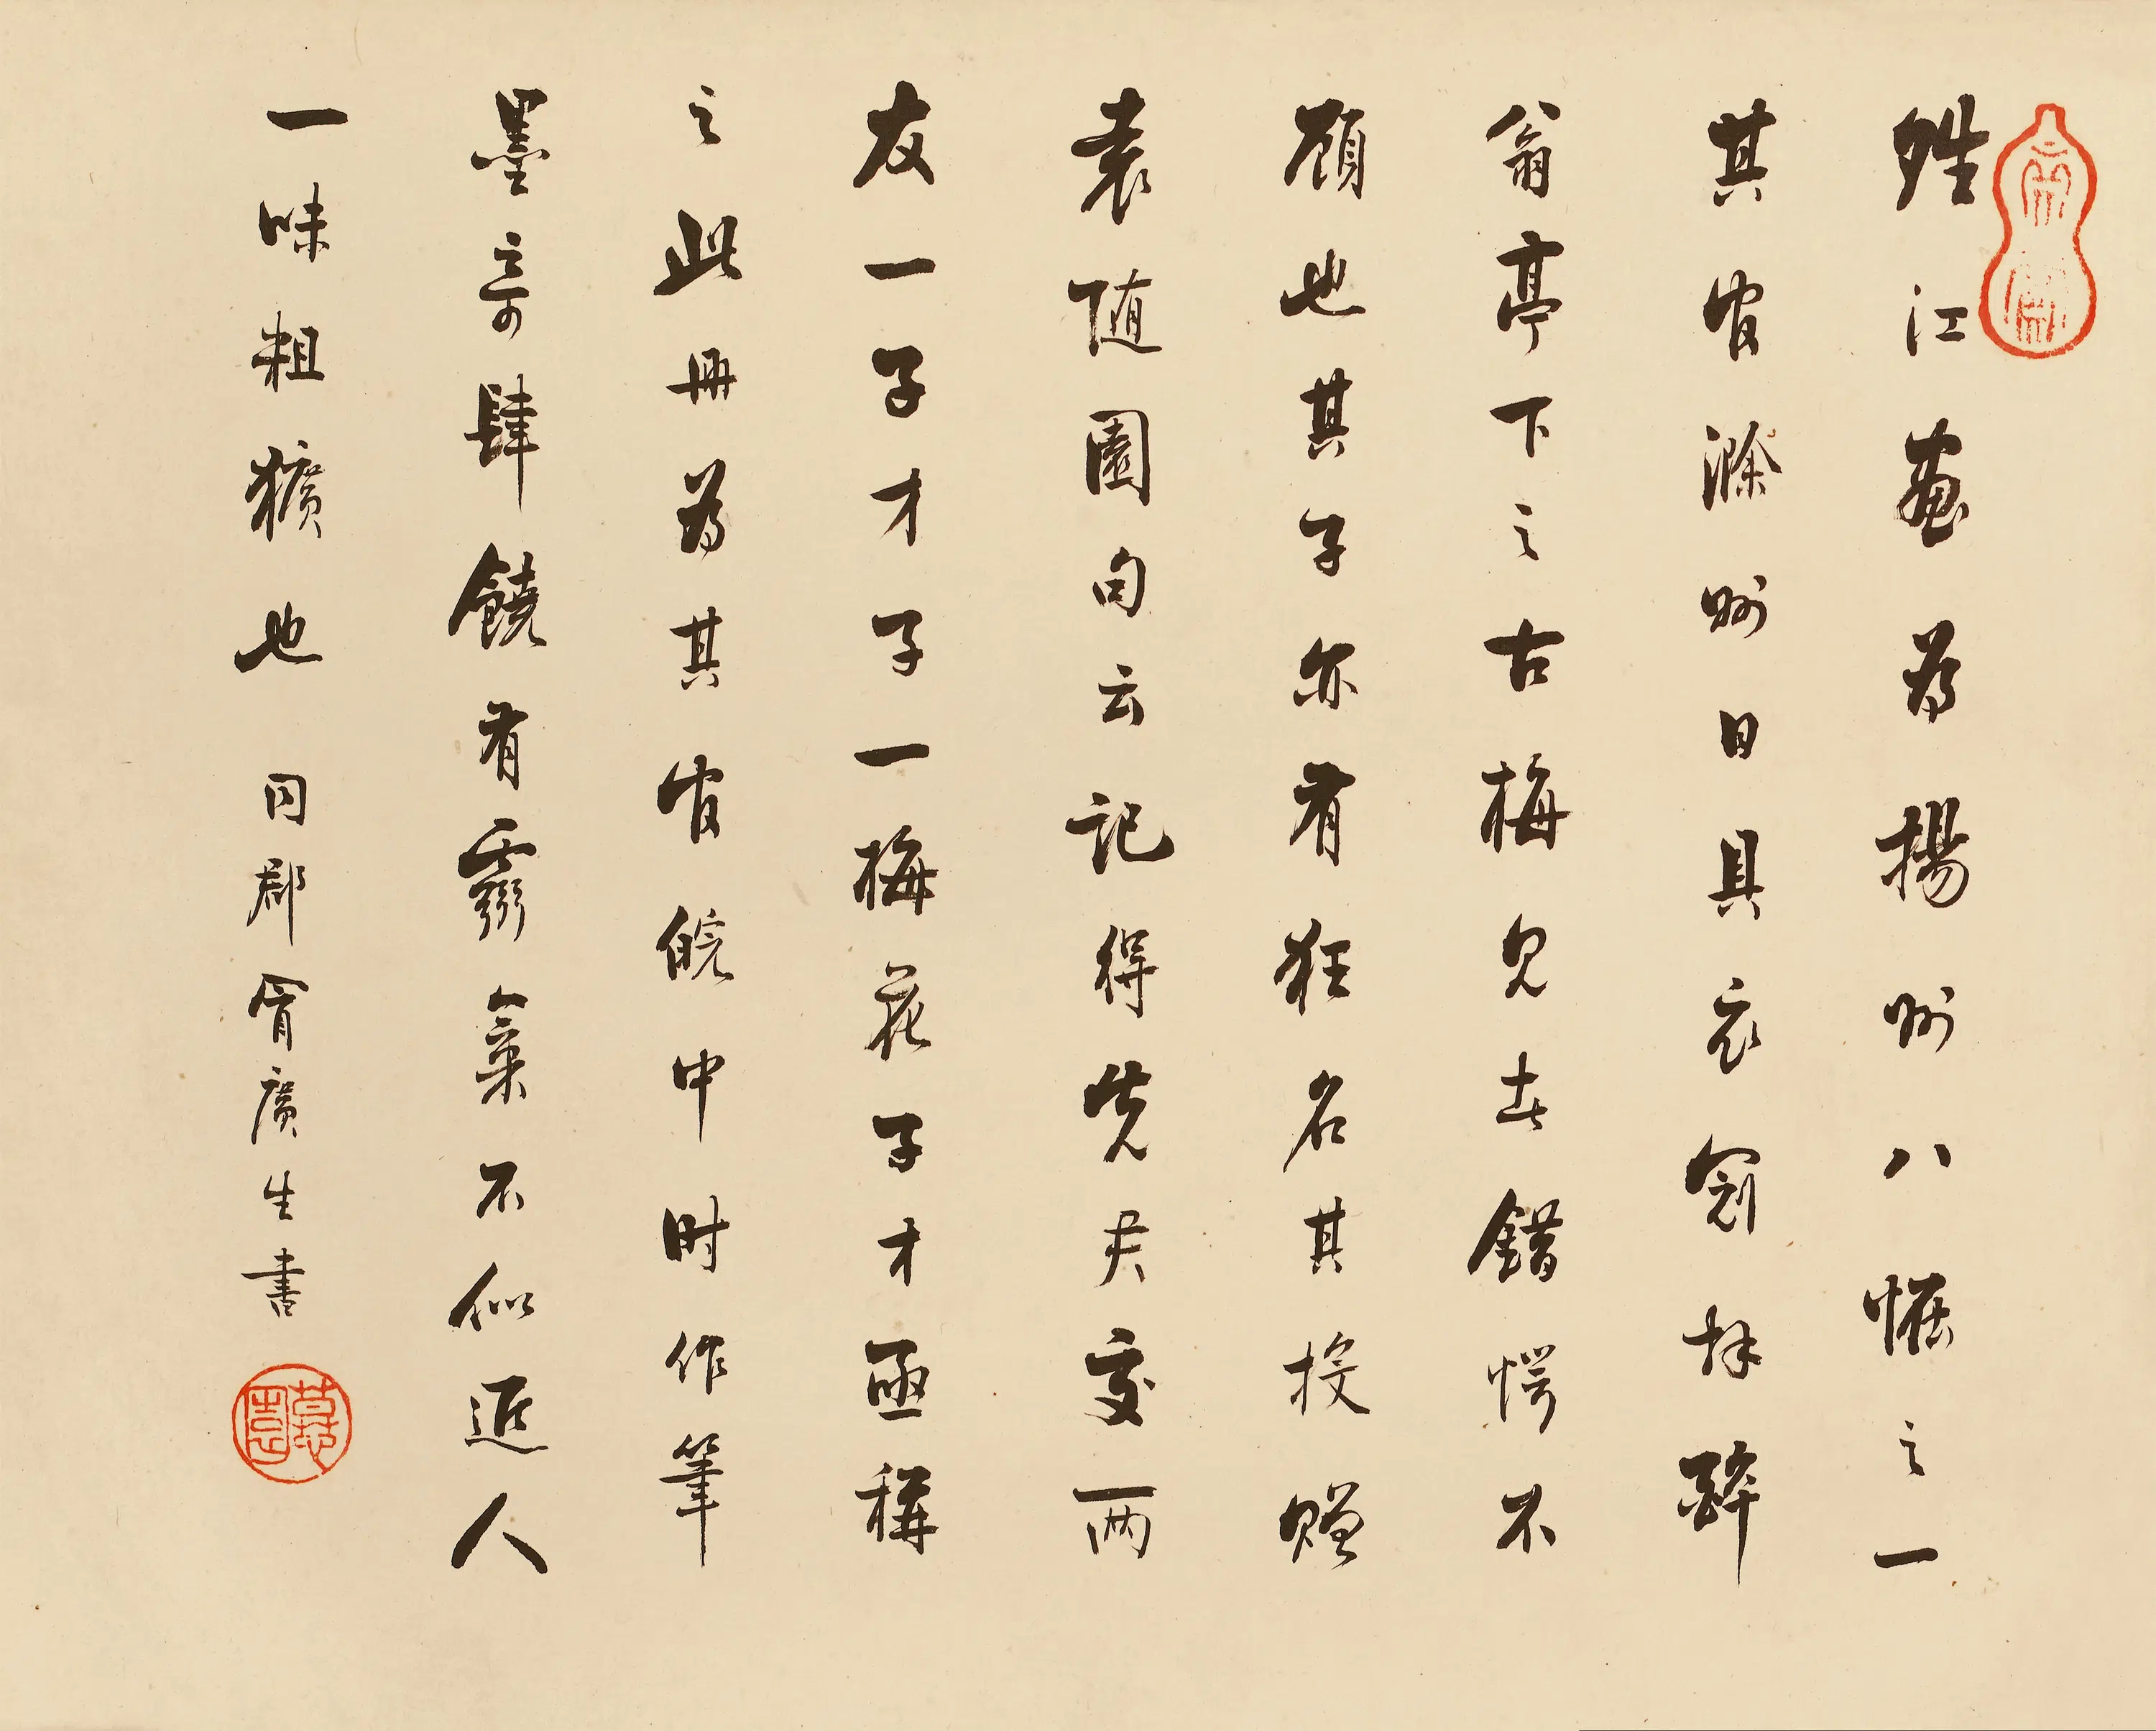 夝江畫為揚州八怪之一
其官滁州日具衣冠拜醉
翁亭下之古梅見者錯愕不
顧也其子亦有狂名其投贈
袁随園句云記得先君交兩
友一子才子一梅花子才亟稱
之此冊為其官皖中时作筆
墨奇肆饒有霸氣不似近人
一味粗獷也 同郡冒廣生書